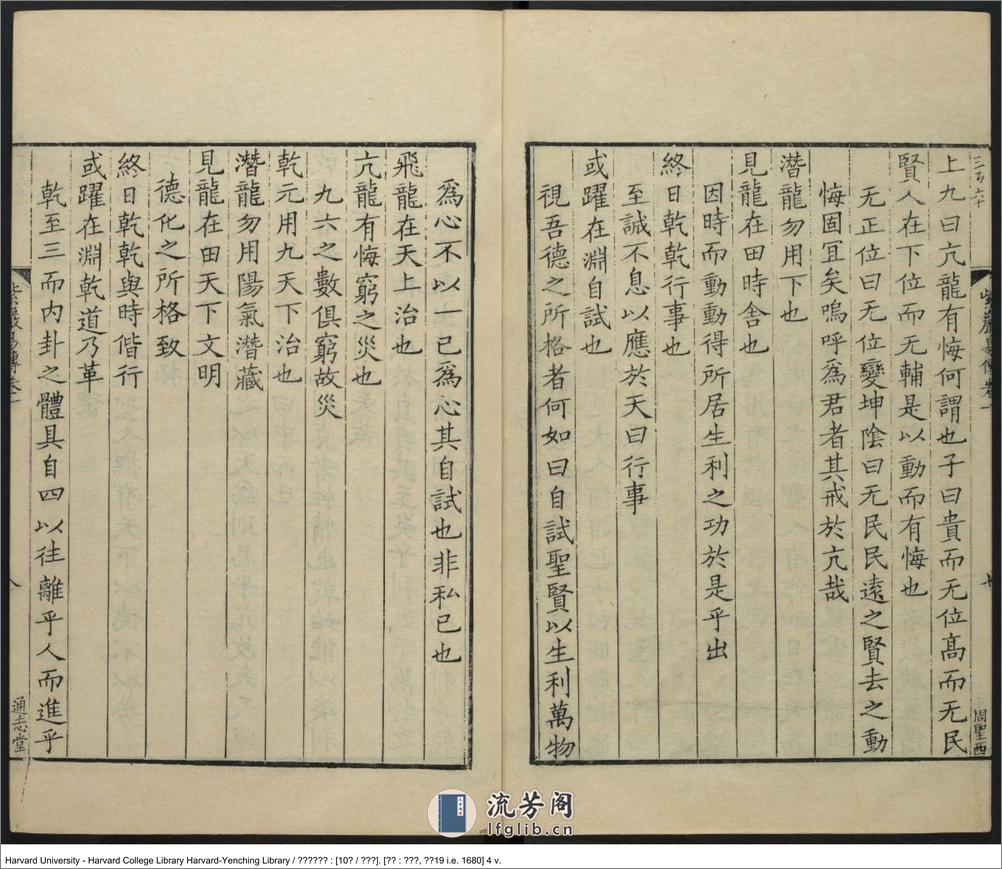 上九曰亢龍有悔何謂也子曰貴而无位髙而无民
賢人在下位而无輔是以動而有悔也
无正位曰无位變坤陰曰无民民遠之賢去之動
悔固宜矣嗚呼爲君者其戒於亢哉
潛龍勿用下也
見龍在田時舍也
因時而動動得所居生利之功於是乎出
終日乾乾行事也
至誠不息以應於天曰行事
或躍在淵自試也
視吾德之所格者何如曰自試聖賢以生利萬物
爲心不以一已爲心其自試也非私已也
飛龍在天上治也
亢龍有悔窮之災也
九六之數俱窮故災
乾元用九天下治也
潛龍勿用陽氣潛藏
見龍在田天下文明
德化之所格致
終日乾乾與時偕行
或躍在淵乾道乃革
乾至三而內卦之體具自四以往離乎人而進乎
通志堂
流芳阁
lfglib.cn
Harvard University - Harvard College Library Harvard-Yenching Library / ?????? : [10? / ???]. [?? : ???, ??19 i.e. 1680] 4 v.